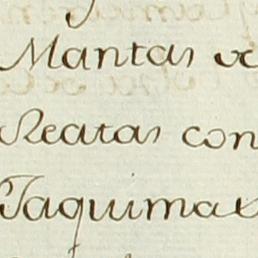 Mantas
Reatas con
Jaquimas